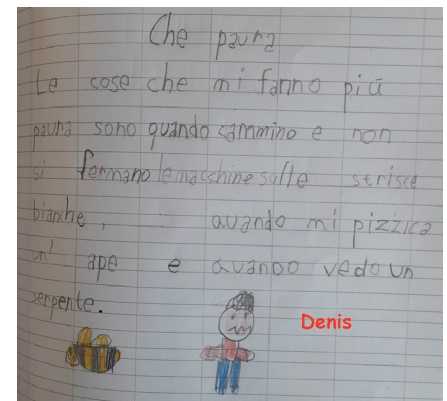 Che paura
Le cose che mi fanno più
paura sono quando cammino e non
si fermano le macchine sulle strisce
bianche, quando mi pizzica
un' ape e quando vedo un
serpente.
Denis